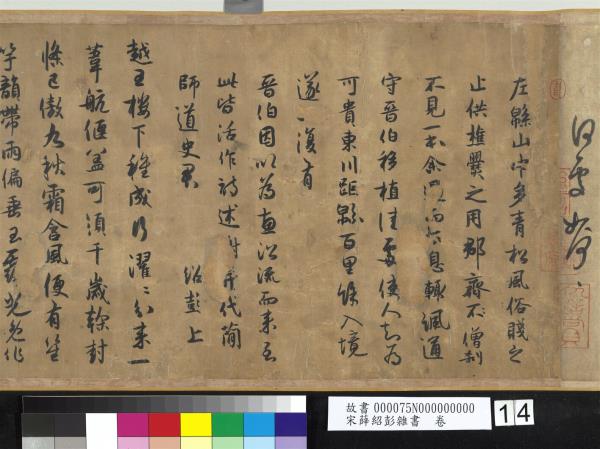 左緜山中多青松風俗賤之
止供樵爨之用郡齋僧刹
不見一本余過而太息輒諷通
守晉伯移植佳處使人知為
可貴東川距緜百里餘入境
遂復有
晉伯因以為惠沿流而來至
此皆活作詩述謝并代簡
師道史君 紹彭上
越王樓下種成行濯濯分來一
葦航偃蓋可須千歲榦封
條已傲九秋霜含風便有笙
竽韻帶雨偏垂玉露光免作
故書 000075N000000000
宋薛紹彭雜書 卷
14